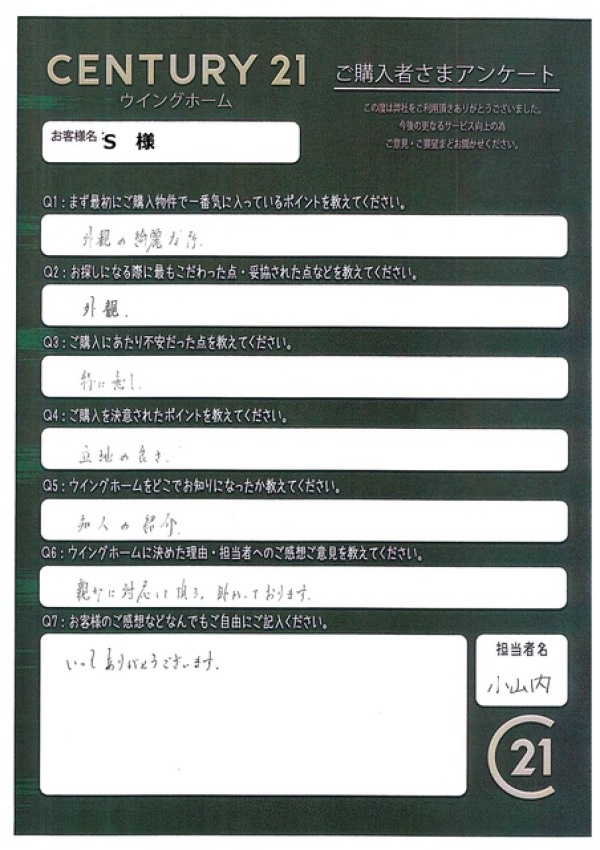 CENTURY 21
ウイングホーム
ご購入者さまアンケート
この度は弊社をご利用頂きありがとうございました。
今後の更なるサービス向上の為
ご意見・ご要望などお聞かせください。
お客様名:S 様
Q1:まず最初にご購入物件で一番気に入っているポイントを教えてください。
外観の綺麗な所.
Q2:お探しになる際に最もこだわった点・妥協された点などを教えてください。
外観.
Q3:ご購入にあたり不安だった点を教えてください。
特に無し.
Q4:ご購入を決意されたポイントを教えてください。
立地の良さ.
Q5:ウイングホームをどこでお知りになったか教えてください。
知人の紹介.
Q6:ウイングホームに決めた理由・担当者へのご感想ご意見を教えてください。
親切に対応して頂き、助かっております.
Q7:お客様のご感想などなんでもご自由にご記入ください。
いつもありがとうございます.
担当者名
小山内
21